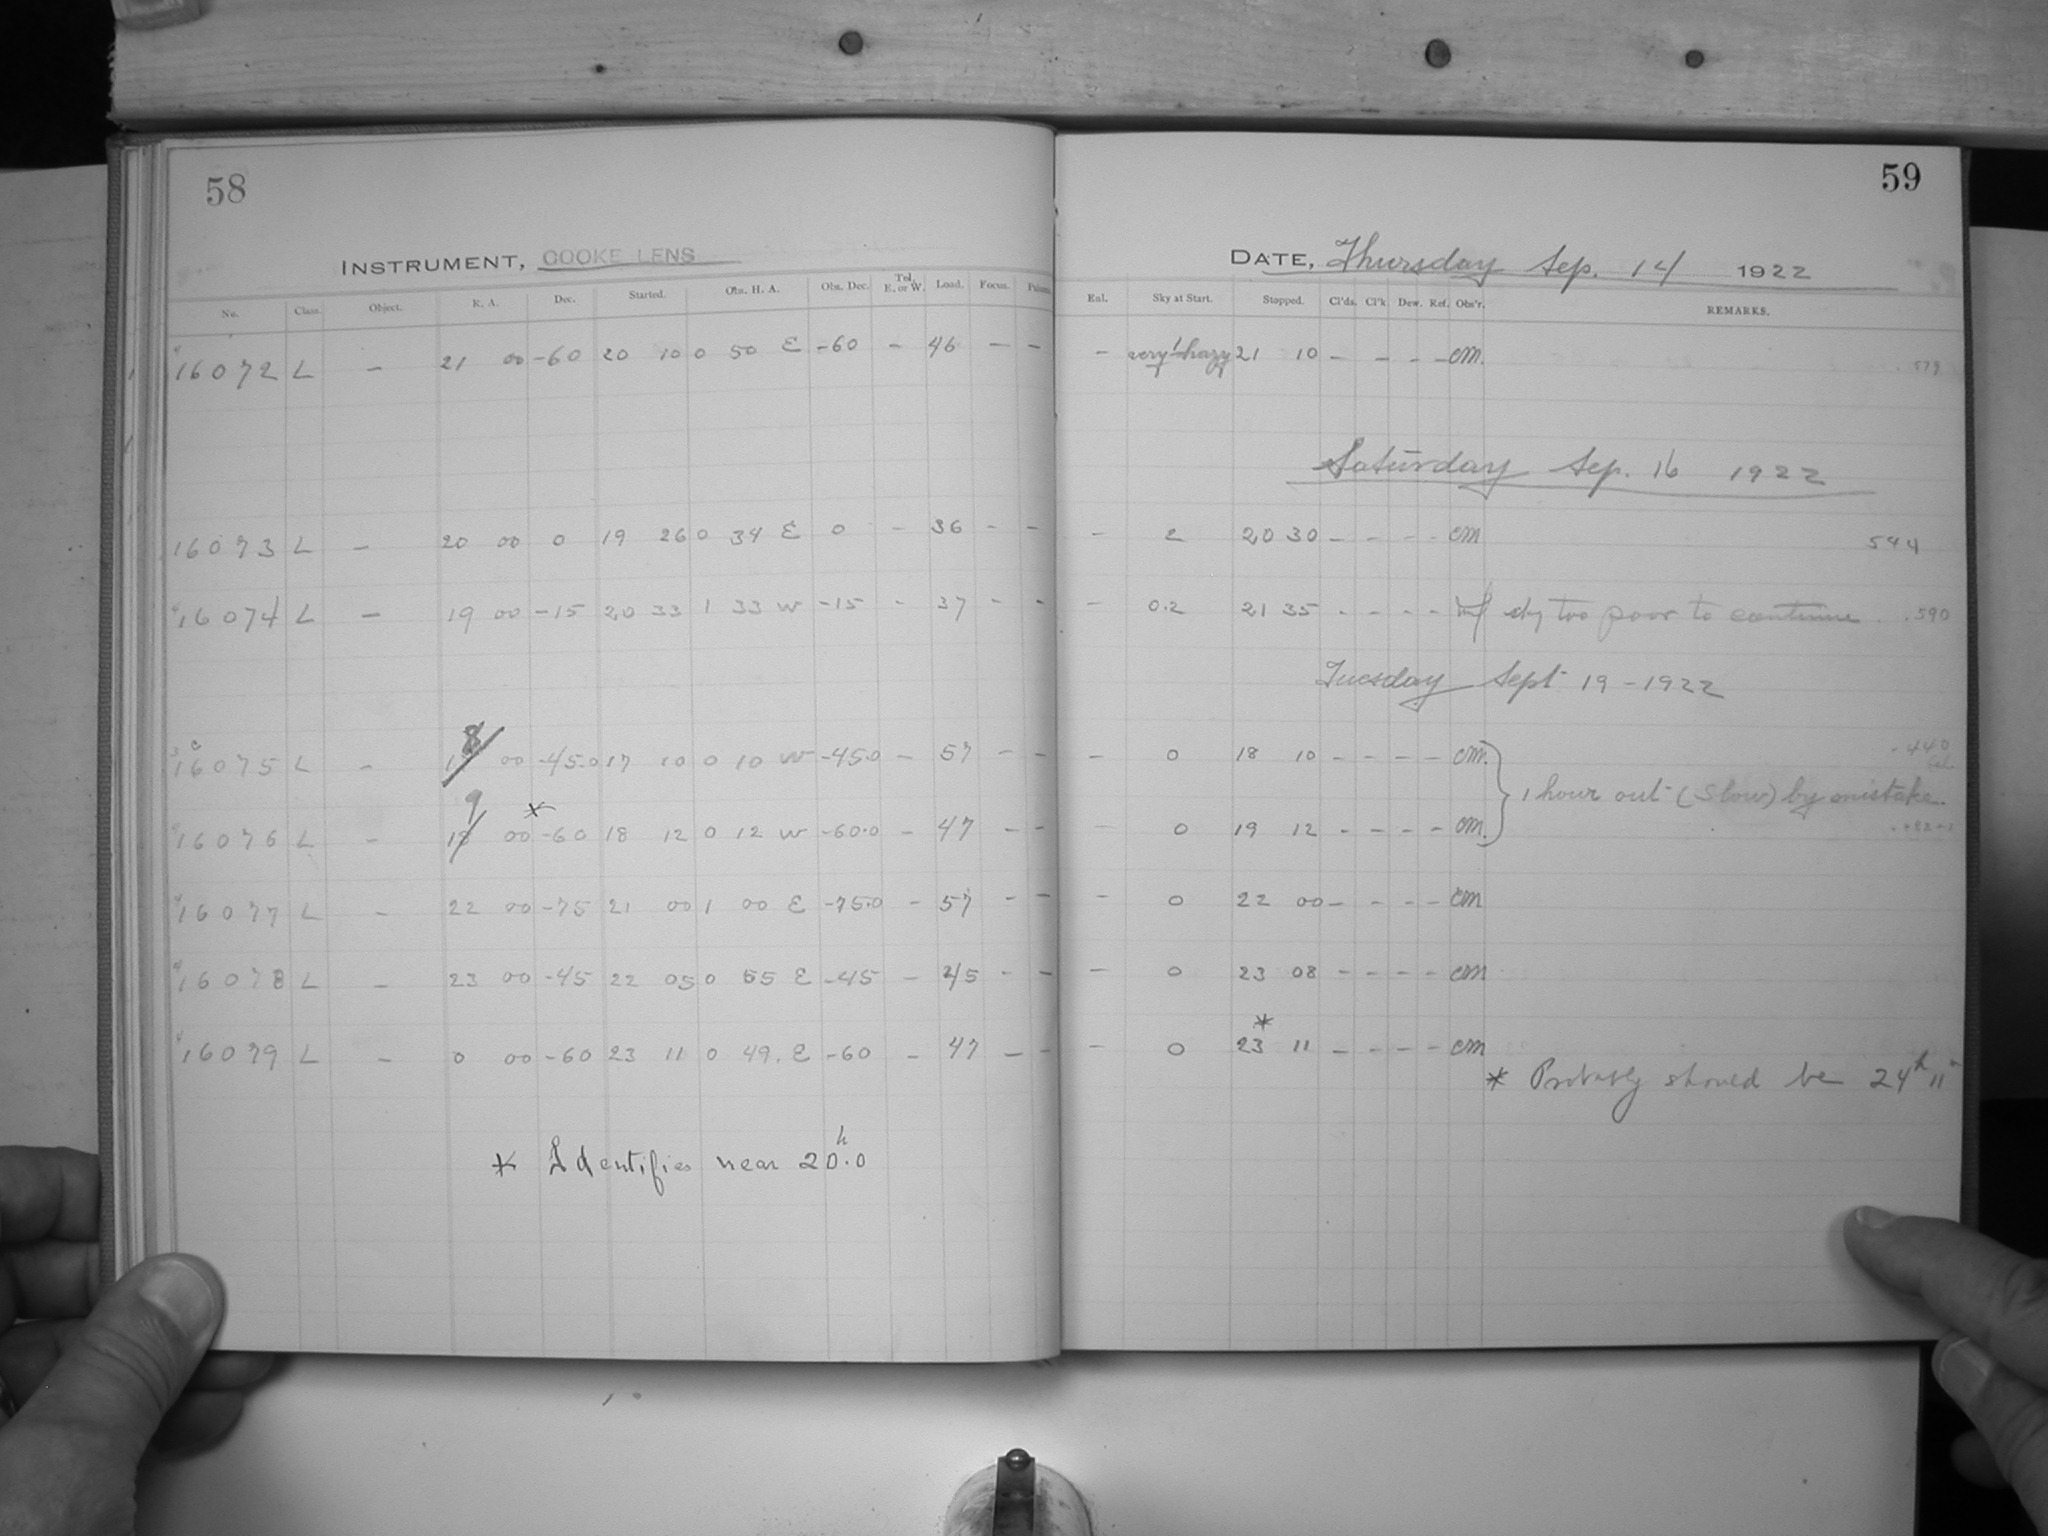 58
INSTRUMENT, COOKE LENS
No. Class. Object. R. A. Dec. Started. Obs. H. A. Obs. Dec. Tel. E. or W. Load. Focus.
16072 L - 21 00 -60 20 10 0 50 E -60 - 46 - -
16073 L - 20 00 0 19 26 0 34 E 0 - 36 - -
16074 L - 19 00 -15 20 33 1 33 W -15 - 37 - -
8
16075 L - 00 -45.0 17 10 0 10 W -45.0 - 57 - -
9 *
16076 L - 18 00 -60 18 12 0 12 W -60.0 - 47 - -
16077 L - 22 00 -75 21 00 1 00 E -75.0 - 57 - -
16078 L - 23 00 -45 22 05 0 55 E -45 - 45 - -
16079 L - 0 00 -60 23 11 0 49. E -60 - 47 - -
* Identifies near 20h.0
59
DATE, Thursday Sep. 14 1922
Enl. Sky at Start. Stopped. Cl'ds. Cl'k Dew. Ref. Obs'r. REMARKS.
- very hazy 21 10 - - - - CM. 579
Saturday Sep. 16 1922
- 2 20 30 - - - - CM 544
- 0.2 21 35 - - - - sky too poor to continue .590
Tuesday Sept 19-1922
- 0 18 10 - - - - CM. .440
1 hour out (Slow) by mistake.
- 0 19 12 - - - - CM.
- 0 22 00 - - - - CM
- 0 23 08 - - - - CM
*
- 0 23 11 - - - - CM
* Probably should be 24h 11m